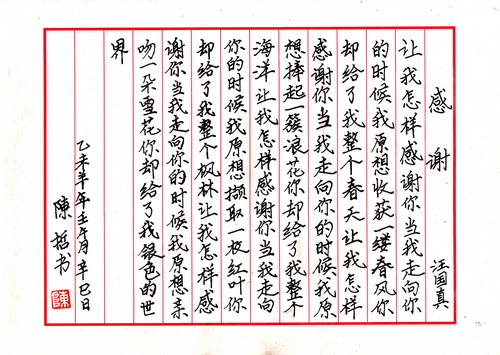 感谢
汪国真
让我怎样感谢你当我走向你
的时候我原想收获一缕春风你
却给了我整个春天让我怎样
感谢你当我走向你的时候我原
想捧起一簇浪花你却给了我整个
海洋让我怎样感谢你当我走向
你的时候我原想撷取一枚红叶你
却给了我整个枫林让我怎样感
谢你当我走向你的时候我原想亲
吻一朵雪花你却给了我银色的世
界
乙未羊年壬午月辛巳日
陳哲书
陳